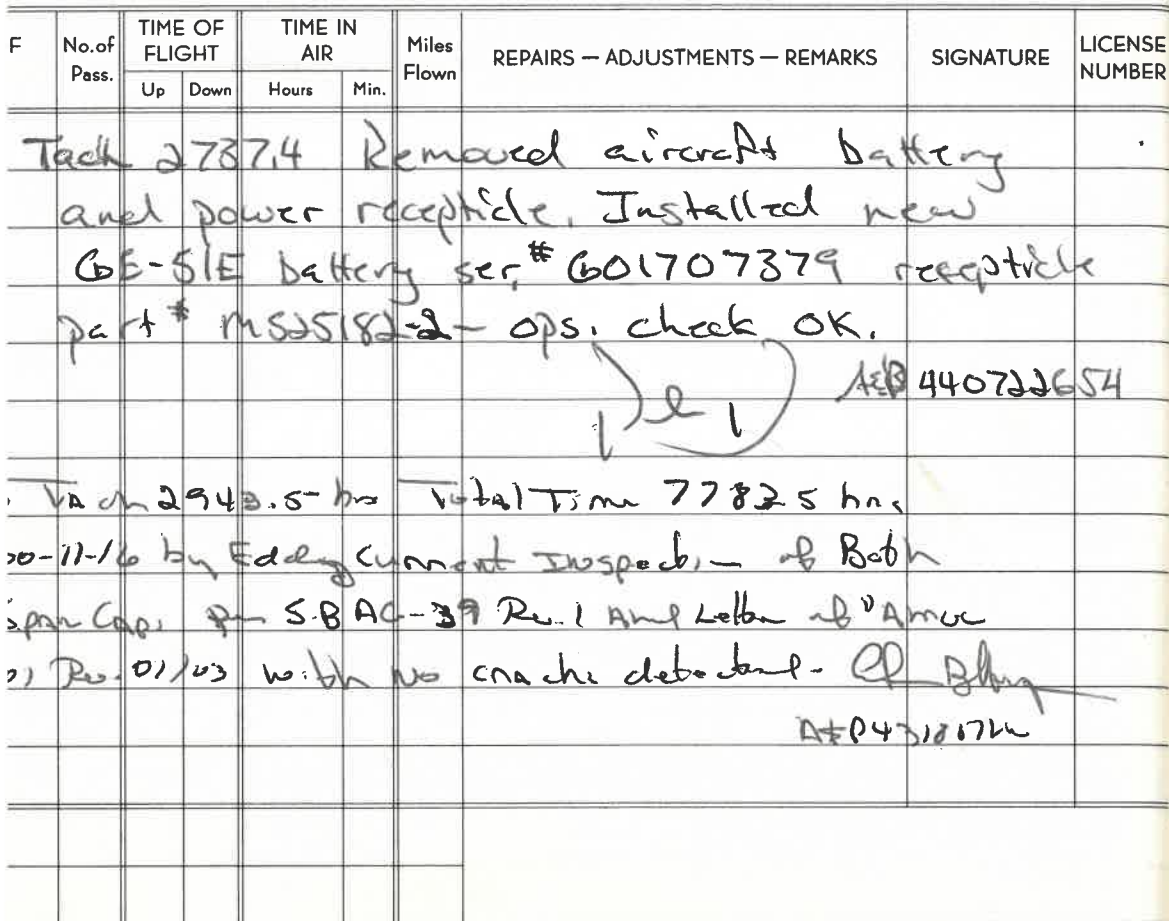 F No.of Pass. TIME OF FLIGHT Up Down TIME IN AIR Hours Min. Miles Flown REPAIRS — ADJUSTMENTS — REMARKS SIGNATURE LICENSE NUMBER
Tach 2737.4 Removed aircraft battery
and power recepticle. Installed new
GE-51E battery ser,# G01707379 recepticle
part # MS25182-2 - ops. check OK.
A&P 440722654
Tach 2943.5 hrs Total Time 7782.5 hrs
00-11-16 by Eddy Current Inspection of Both
Spar Caps Per S.B AG-39 Rev. 1 And Letter of Amoc
Rev. 01/03 with No cracks detected-
A&P